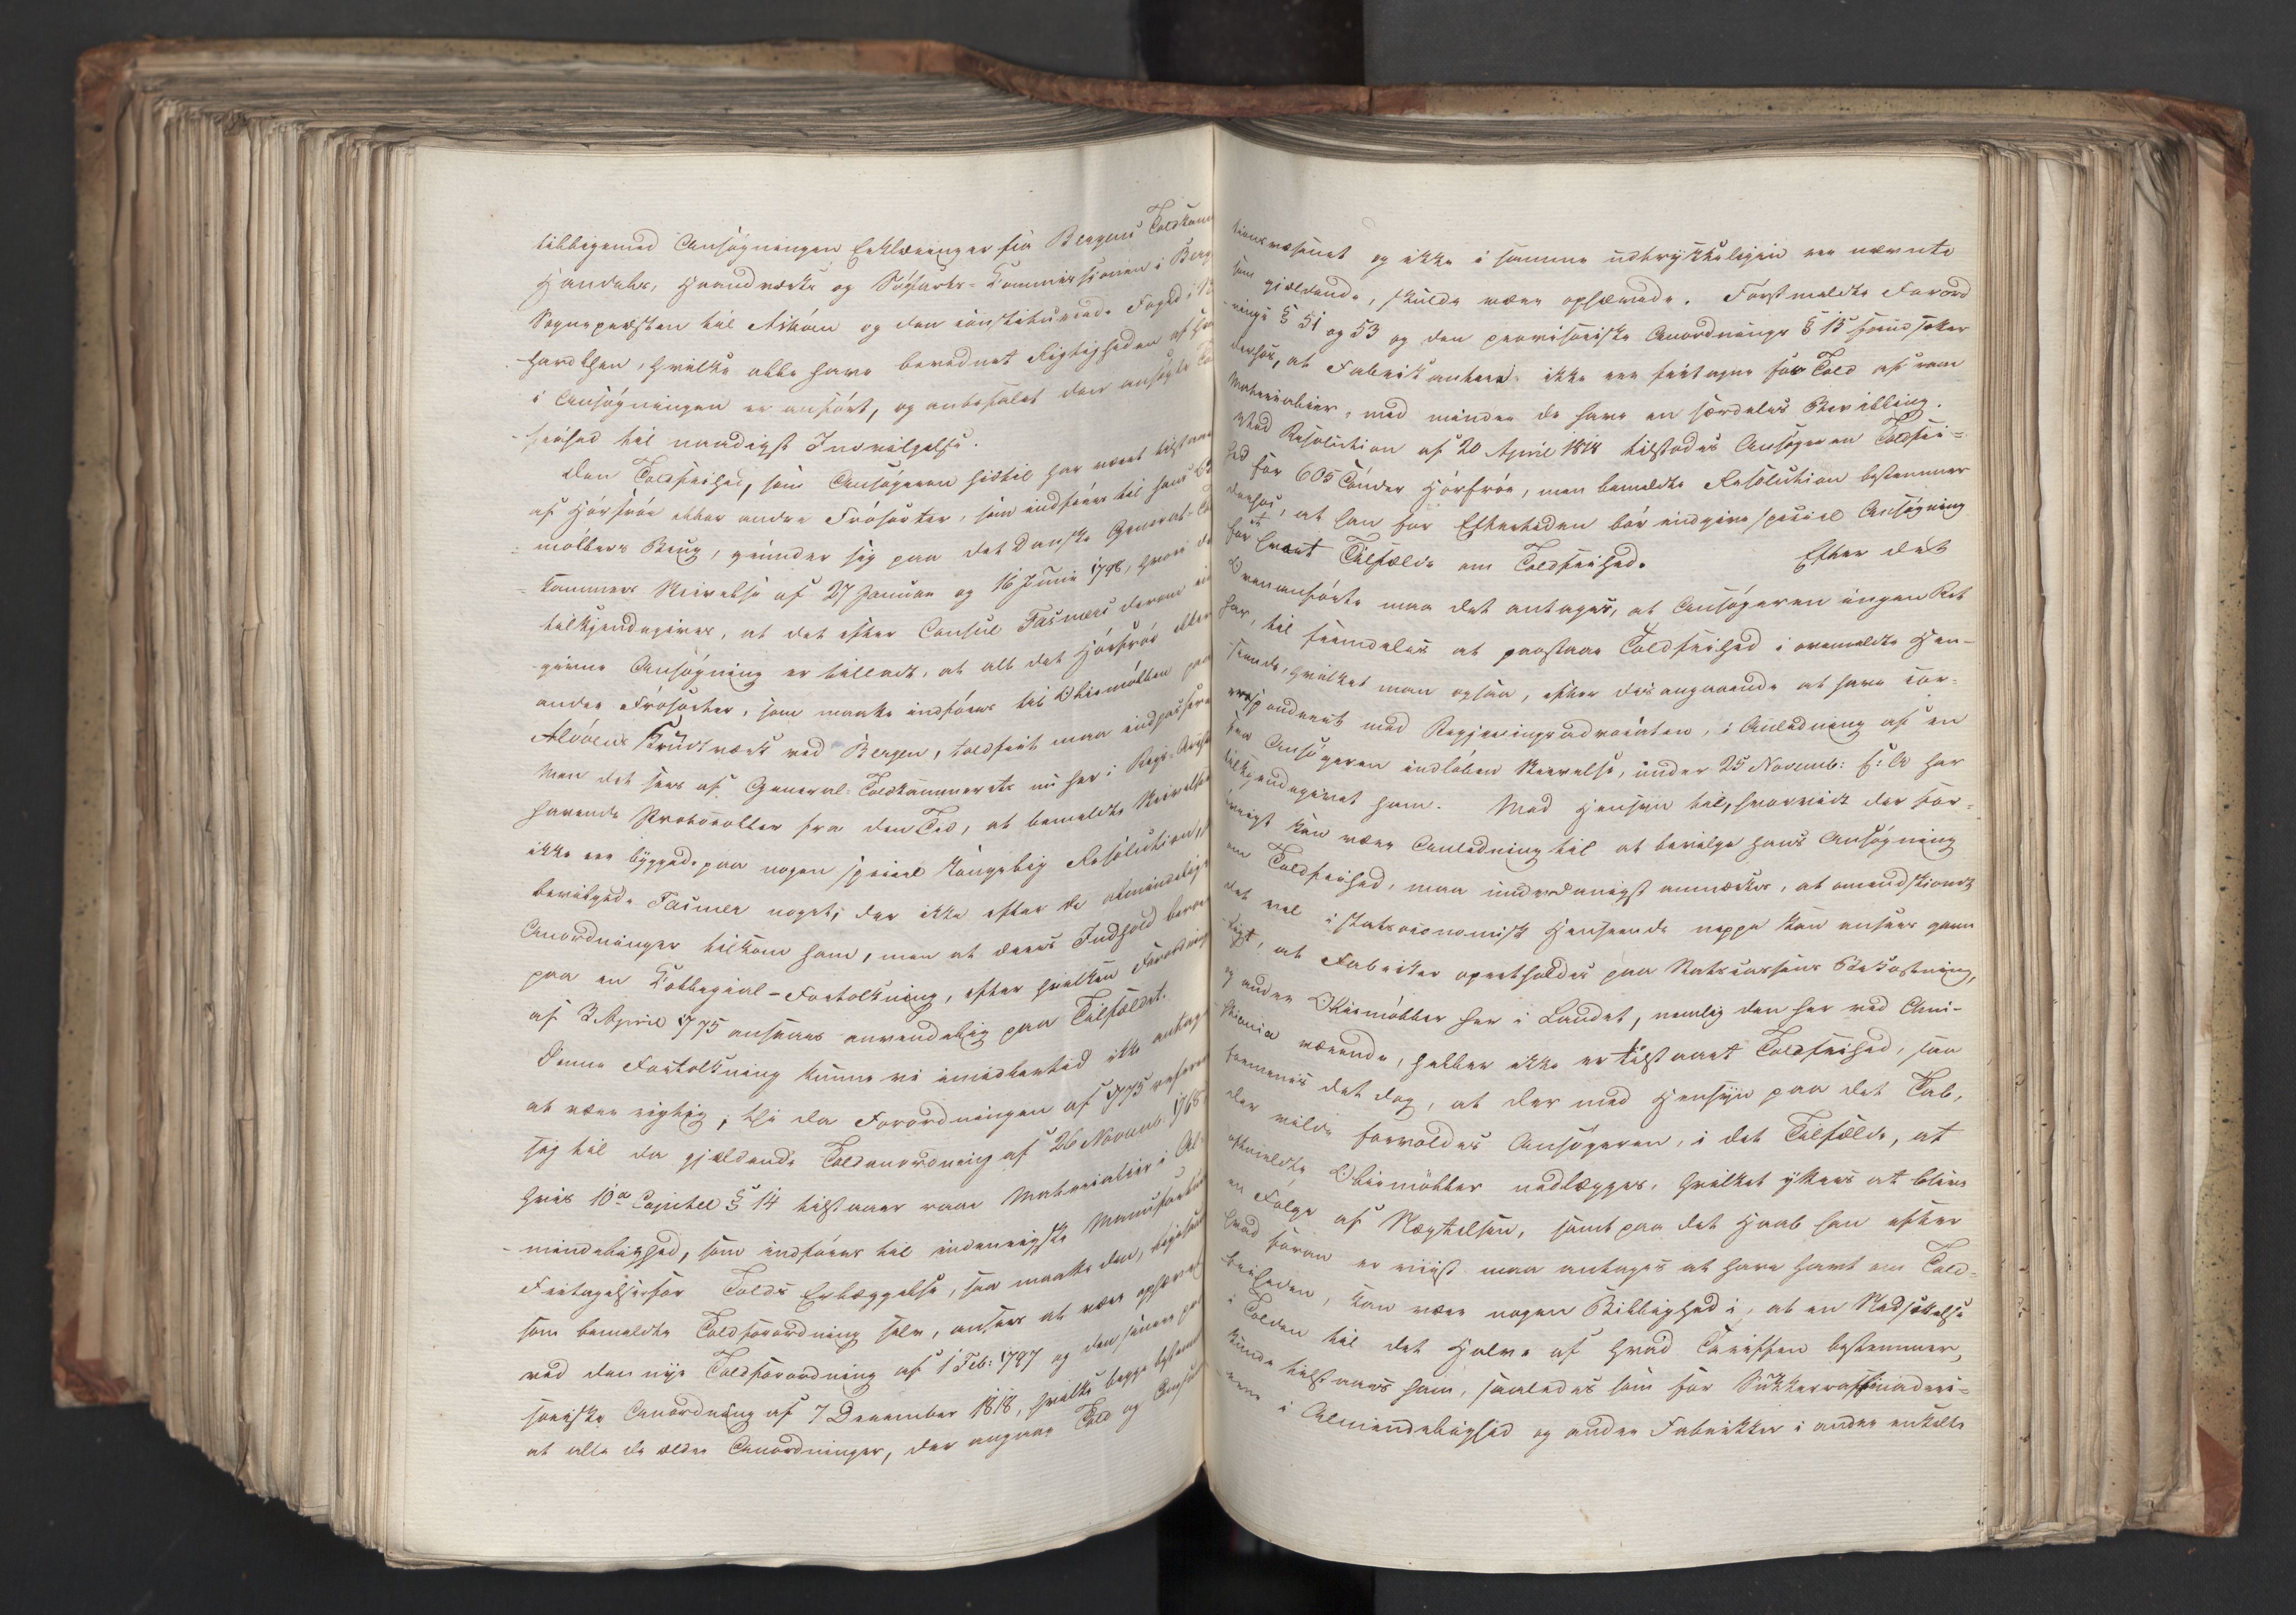 tilligemed Ansøgningen Erklæringer fra Bergens Toldkam
Handels, Haandværks og Søfarts-Kommissionen i Berg
Sognepræsten til Askøen og den constituerede Foged i N
hordlehn, hvilke alle have bevidnet Rigtigheden af hva
i Ansøgningen er anført, og anbefalet den ansøgte To
frihed til naadigst Indvilgelse.
Den Toldfrihed, som Ansøgeren hidtil har været tilstaaet
af Hørfrøe eller andre Frøsorter, som indføres til hans O
møllers Brug, grunder sig paa det Danske General-To
kammers Skrivelse af 27 Januar og 16 Junii 1798, hvori de
tilkjendegives, at det efter Consul Fasmers derom ind
givne Ansøgning er tilladt, at alt det Hørfrøe eller
andre Frøsorter, som maatte indføres til Oliemøllen paa
Alvøens Krudtværk ved Bergen, toldfrit maa indpassere
Men det sees af General-Toldkammerets nu her i Rigs-Archi
havende Protocoller fra den Tid, at bemeldte Skrivelse
ikke ere byggede paa nogen speciel kongelig Resolution,
bevilgede Fasmer noget, der ikke efter de almindelige
Anordninger tilkom ham, men at deres Indhold beroe
paa en Collegial-Fortolkning, efter hvilken Forordning
af 3 April 1775 ansaaes anvendelig paa Tilfældet.
Denne Fortolkning kunne vi imidlertid ikke antage
at være rigtig, thi da Forordningen af 1775 referer
sig til da gjældende Toldanordning af 26 Novemb. 1768
hvis 10de Capitel § 14 tilstaaer raae Materialier i Al-
mindelighed, som indføres til indenrigske Manufacturer
Fritagelse for Tolds Erlæggelse, saa maatte den, ligesaa
som bemeldte Toldforordning selv, ansees at være ophævet
ved den nye Toldforordning af 1 Feb: 1797 og den senere pro
soriske Anordning af 7 December 1818, hvilke begge bestemme
at alle de ældre Anordninger, der angaae Told og Consum
tionsvæsenet og ikke i samme udtrykkeligen ere nævnte
som gjeldende, skulde være ophævede. Førstmeldte Forord
nings § 51 og 53 og den provisoriske Anordnings § 15 fremsætter
derhos, at Fabrikanterne ikke ere fritagne for Told af raae
Materialier, med mindre de have en særdeles Bevilling.
Ved Resolution af 20 April 1818 tilstodes Ansøgeren Toldfri-
hed for 605 Tønder Hørfrøe, men bemeldte Resolution bestemmer
derhos, at han for Eftertiden bør indgive speciel Ansøgning
for hvert Tilfælde om Toldfrihed. Efter det
Ovenanførte maa det antages, at Ansøgeren ingen Ret
har, til fremdeles at paastaae Toldfrihed i ovenmeldte Hen-
seende, hvilket man ogsaa, efter desangaaende at have cor-
respondert med Regjeringsadvocaten, i Anledning af en
fra Ansøgeren indløben Skrivelse, under 25 Novemb: f: A har
tilkjendegivet ham. Med Hensyn til, hvorvidt der for-
øvrigt kan være Anledning til at bevilge hans Ansøgning
om Toldfrihed, maa underdanigst anmærkes, at omendskiondt
det vel i statsoeconomisk Henseende neppe kan ansees gavn
ligt, at Fabriker opretholdes paa Statscassens Bekostning,
og andre Oliemøller her i Landet, nemlig den her ved Chri-
stiania værende, heller ikke er tilstaaet Toldfrihed, saa
formenes det dog, at der med Hensyn paa det Tab,
der vilde forvoldes Ansøgeren, i det Tilfælde, at
oftmeldte Oliemøller nedlægges, hvilket yttres at blive
en Følge af Nægtelsen, samt paa det Haab han efter
hvad foran er viist maa antages at have havt om Told-
friheden, kan være nogen Billighed i, at en Nedsættelse
i Tolden til det Halve af hvad Tariffen bestemmer,
kunde tilstaaes ham, saaledes som for Sukkerraffinaderi-
erne i Almindelighed og andre Fabrikker i andre enkelte